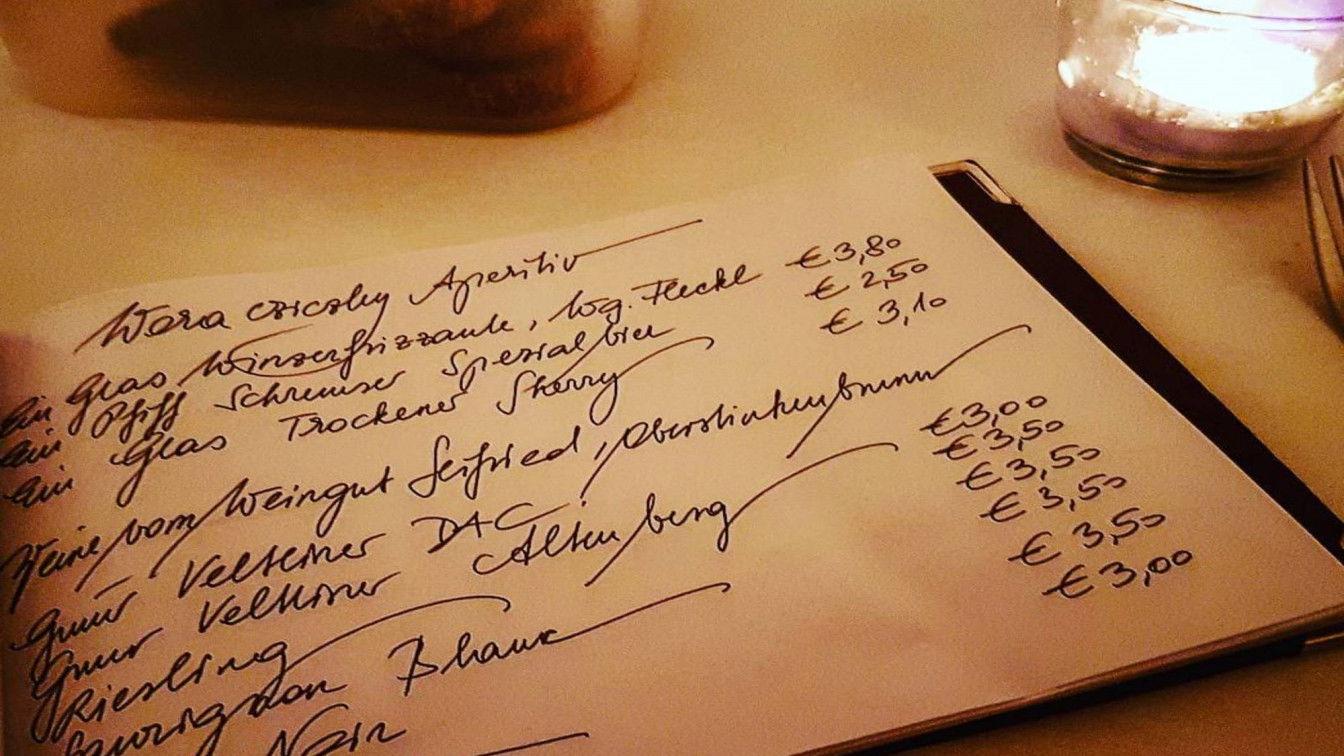 Aperitiv
Ein Glas Winzerfrizzante, Wg. Fleckl € 3,80
Ein Pfiff Schremser Spezialbier € 2,50
Ein Glas Trockener Sherry € 3,10
Weine vom Weingut Seifried, Oberstinkenbrunn
Grüner Veltliner DAC € 3,00
Grüner Veltliner Altenberg € 3,50
Riesling € 3,50
Sauvignon Blanc € 3,50
€ 3,50
€ 3,00